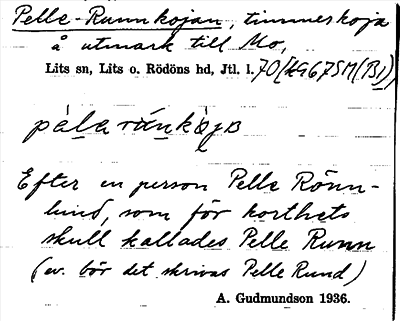 Pelle-Runnkojan, timmerkoja
å utmark till Mo,
Lits sn, Lits o. Rödöns hd, Jtl. l. 70/
Efter en person Pelle Rönn-
lund, som för korthets
skull kallades Pelle Runn
(ev. bör det skrivas Pelle Rund)
A. Gudmundson 1936.